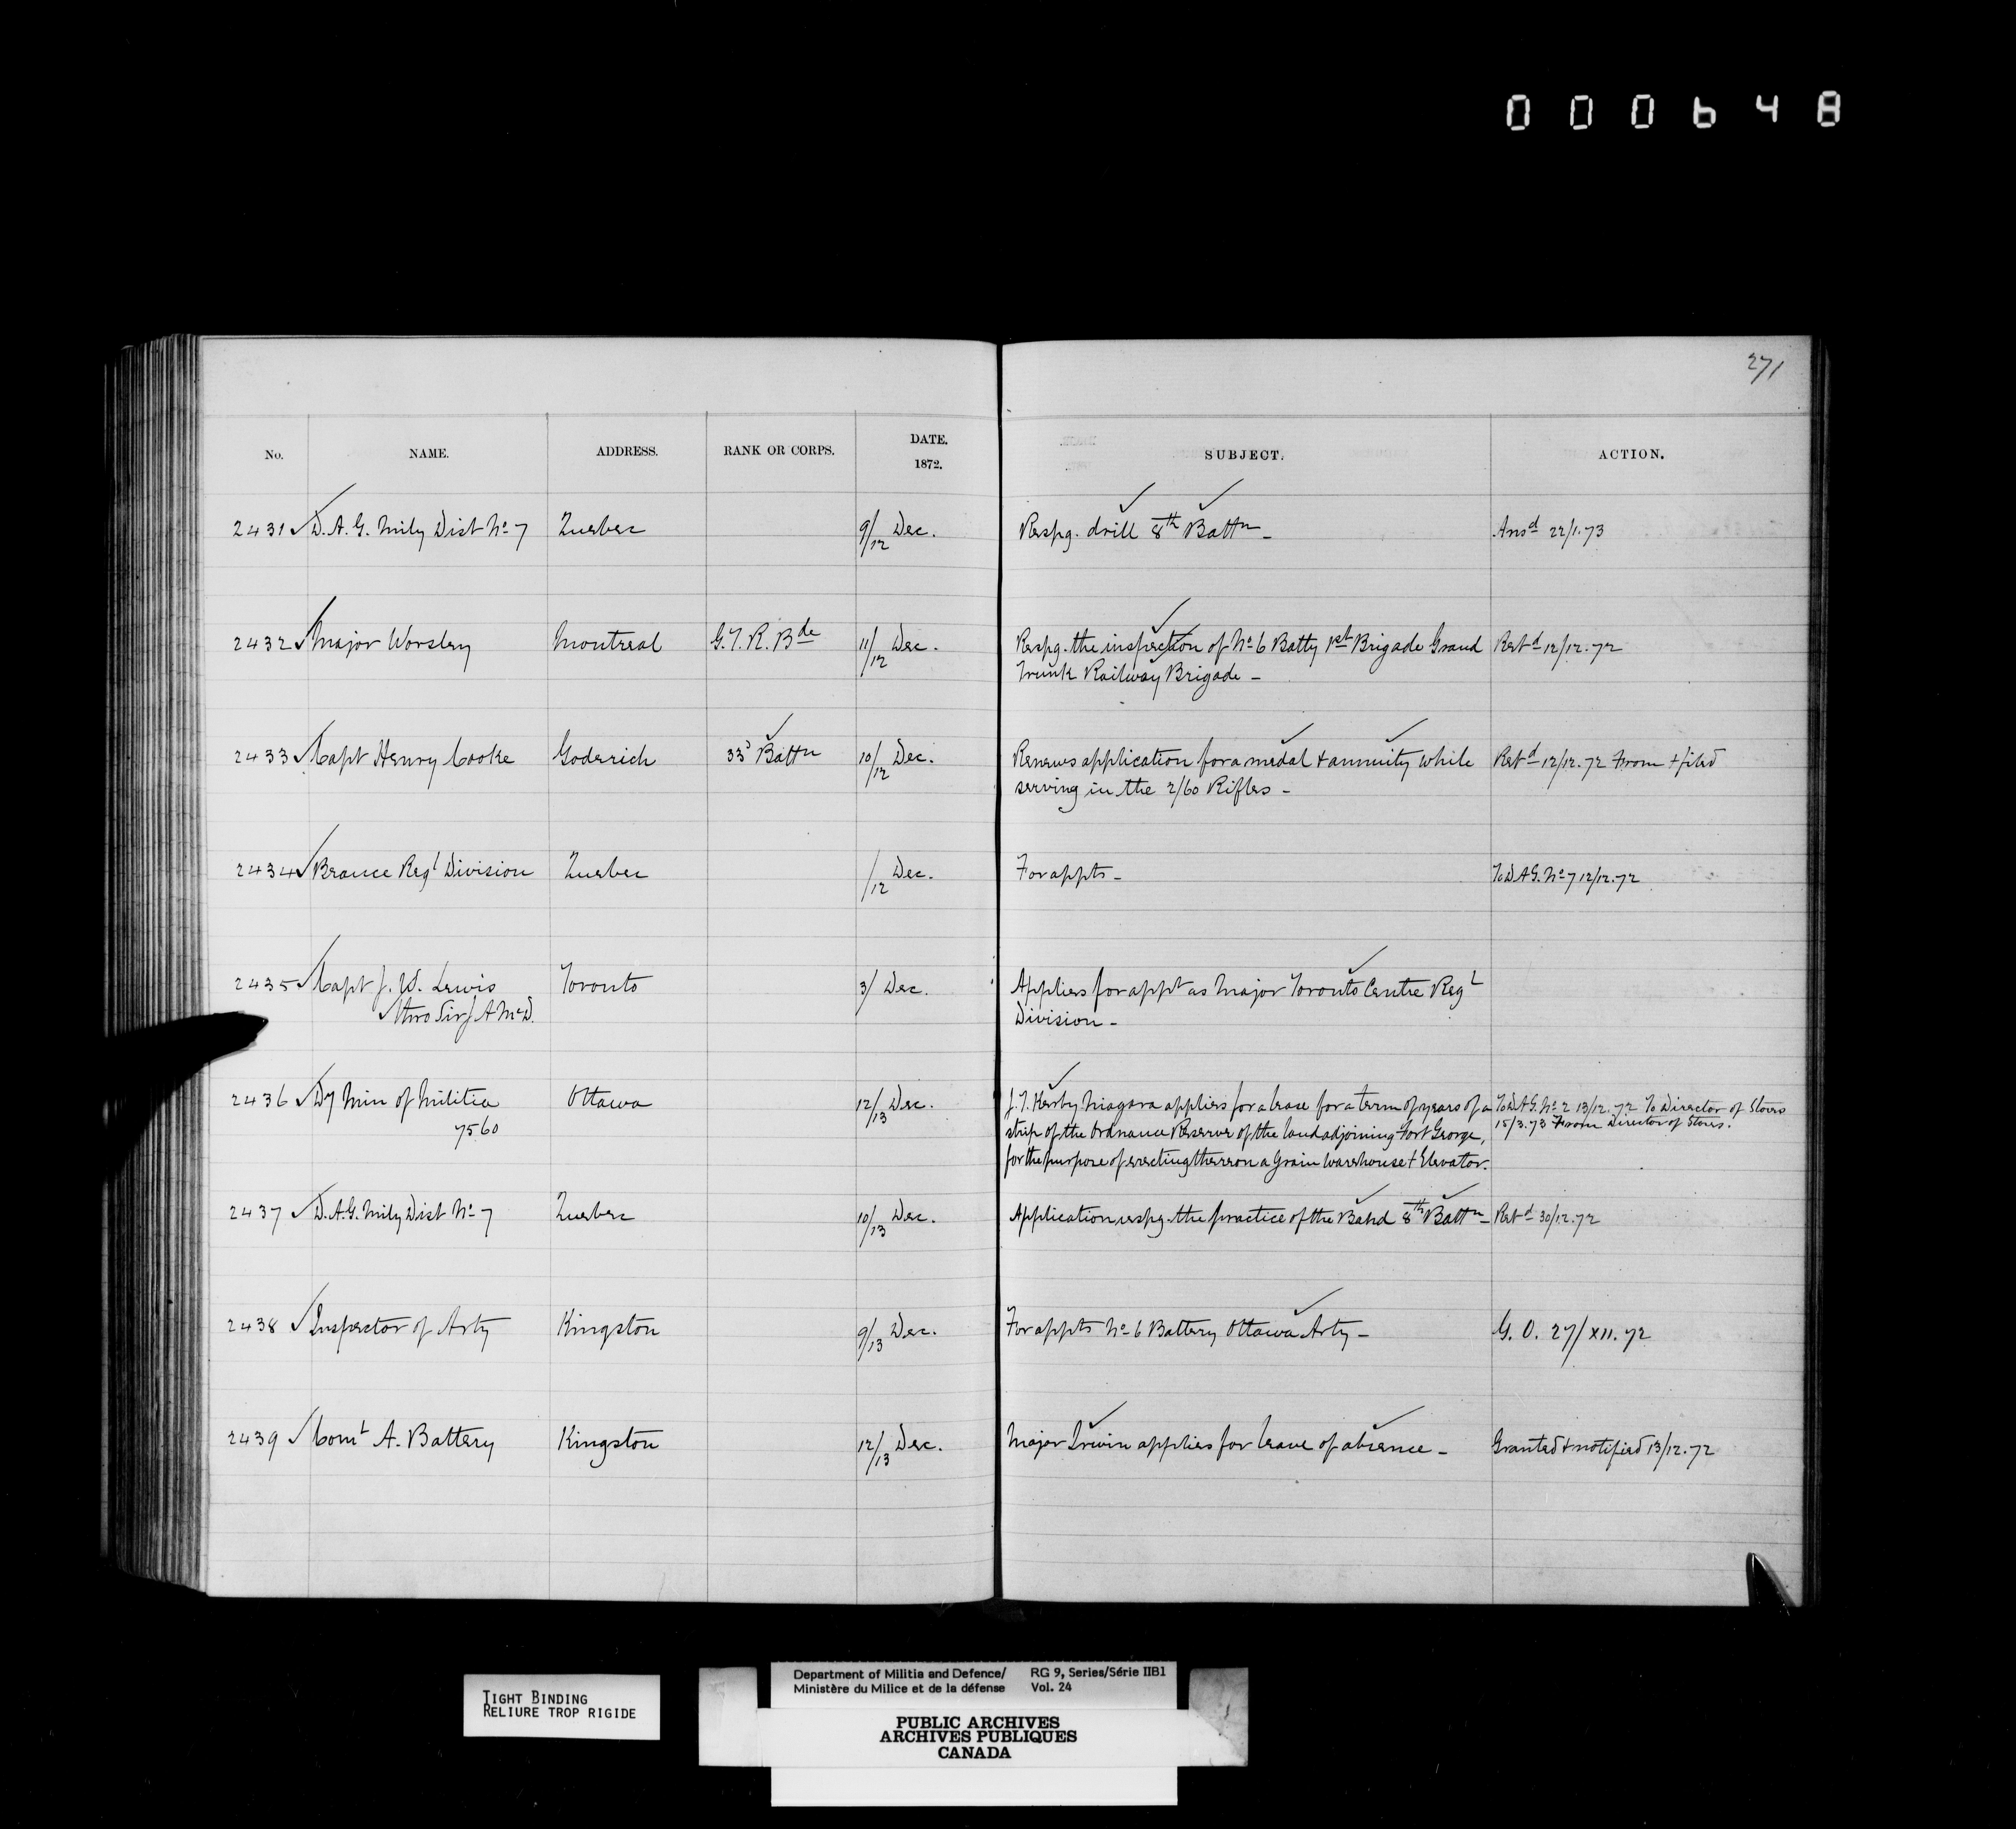 000648
271
No. NAME. ADDRESS. RANK OR CORPS. DATE. 1872. SUBJECT. ACTION.
2431 D. A. G. Mily Dist No 7 Quebec 9/12 Dec. Respg. drill 8th Battn - Ansd 22/1.73
2432 Major Worsley Montreal G. T. R. Bde 11/12 Dec. Respg. the inspection of No 6 Batty 1st Brigade Grand Retd 12/12.72
Trunk Railway Brigade -
2433 Capt Henry Cooke Goderich 33d Battn 10/12 Dec. Renews application for a medal + annuity while Retd 12/12.72 From + filed
serving in the 2/60 Rifles -
2434 Beauce Regl Division Quebec /12 Dec. For appts - To DAG. No 7 12/12.72
2435 Capt J. W. Lewis Toronto 3/ Dec. Applies for appt as Major Toronto Centre Regl
thro Sir J A McD. Division -
2436 Dy Min of Militia Ottawa 12/13 Dec. J. T. Kerby Niagara applies for a lease for a term of years of a To DAG. No 2 13/12.72 To Director of Stores
7560 strip of the Ordnance Reserve of the land adjoining Fort George, 15/3.73 From Director of Stores.
for the purpose of erecting thereon a Grain Warehouse + Elevator.
2437 D. A. G. Mily Dist No 7 Quebec 10/13 Dec. Application respg. the practice of the Band 8th Battn - Retd 30/12.72
2438 Inspector of Arty Kingston 9/13 Dec. For appts No 6 Battery Ottawa Arty - G. O. 27/XII.72
2439 Comt A. Battery Kingston 12/13 Dec. Major Irwin applies for leave of absence - Granted + notified 13/12.72
TIGHT BINDING
RELIURE TROP RIGIDE
Department of Militia and Defence/ RG 9, Series/Série IIB1
Ministère du Milice et de la défense Vol. 24
PUBLIC ARCHIVES
ARCHIVES PUBLIQUES
CANADA